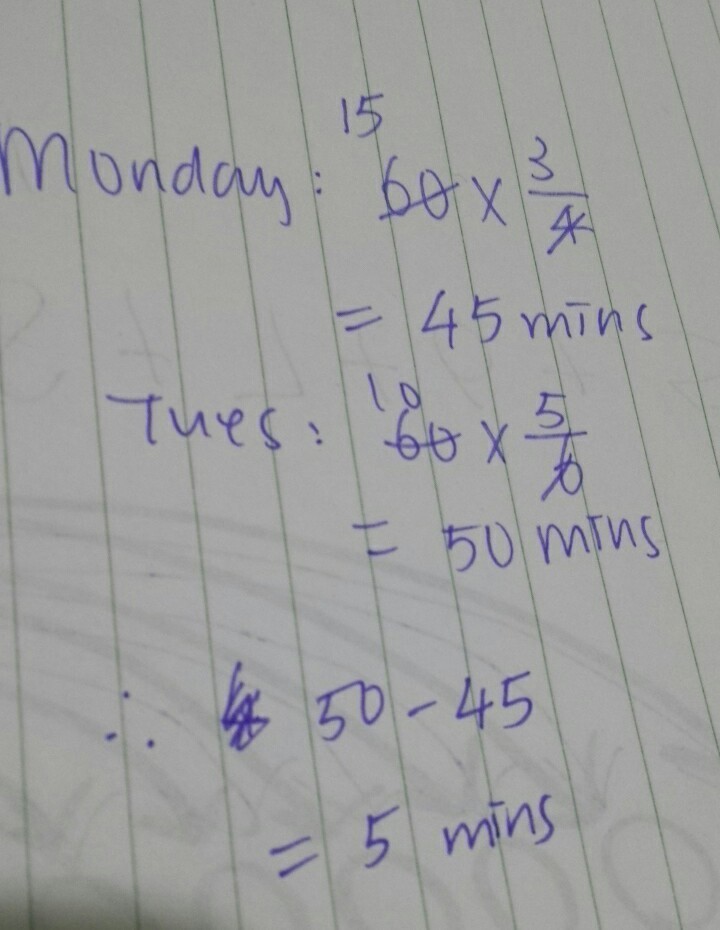 Monday: 15
60 × 3/4
= 45 mins
Tues: 10
60 × 5/6
= 50 mins
∴ 50 - 45
= 5 mins